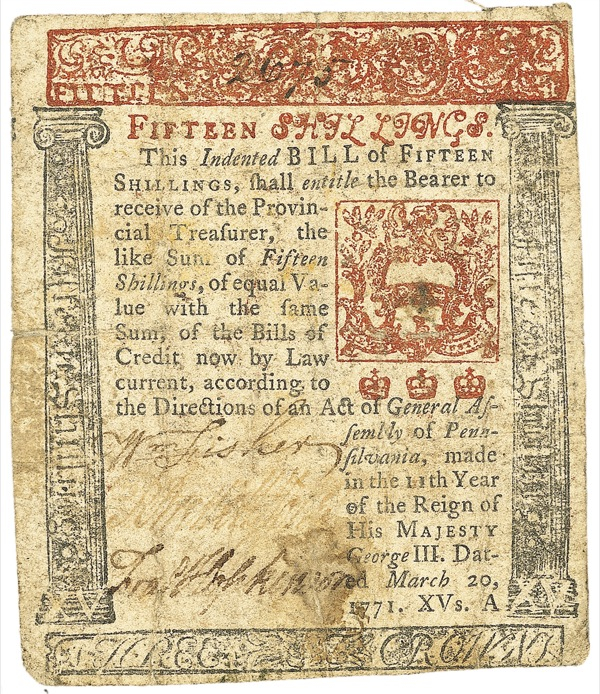 2675
FIFTEEN
FIFTEEN SHILLINGS.
This Indented BILL of FIFTEEN
SHILLINGS, ſhall entitle the Bearer to
receive of the Provin-
cial Treaſurer, the
like Sum of Fifteen
Shillings, of equal Va-
lue with the ſame
Sum, of the Bills of
Credit now by Law
current, according to
the Directions of an Act of General Aſ-
ſembly of Penn-
ſilvania, made
in the 11th Year
of the Reign of
His MAJESTY
George III. Dat-
ed March 20,
1771. XVs. A
Wm Fisher
Fras Hopkinson
THREE CROWNS
Fifteen Shillings
Fifteen Shillings